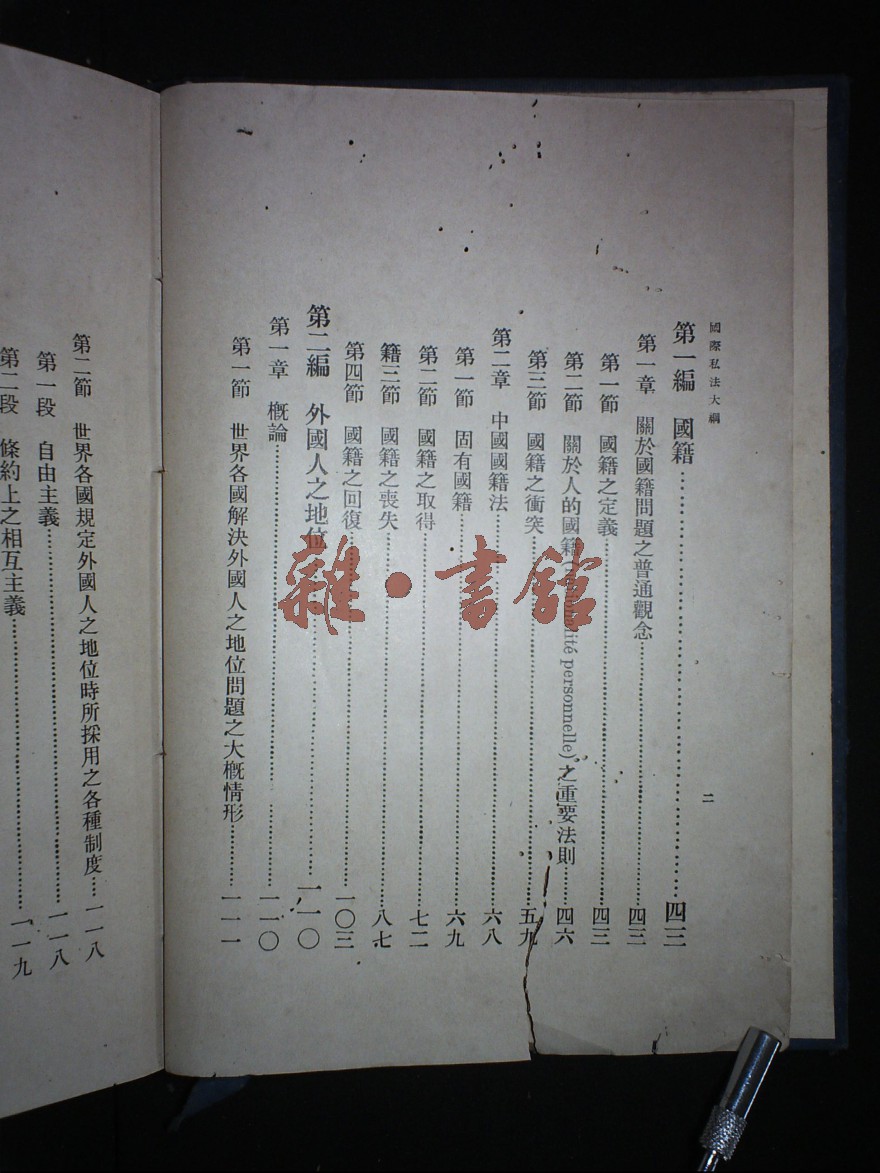 國際私法大綱
二
第一編 國籍……四三
第一章 關於國籍問題之普通觀念……四三
第一節 國籍之定義……四三
第二節 關於人的國籍(nationalité personnelle)之重要法則……四六
第三節 國籍之衝突……五九
第二章 中國國籍法……六八
第一節 固有國籍……六九
第二節 國籍之取得……七二
籍三節 國籍之喪失……八七
第四節 國籍之回復……一〇三
第二編 外國人之地位……一一〇
第一章 概論……一一〇
第一節 世界各國解決外國人之地位問題之大概情形……一一一
第二節 世界各國規定外國人之地位時所採用之各種制度……一一八
第一段 自由主義……一一八
第二段 條約上之相互主義……一一九
雜·書館